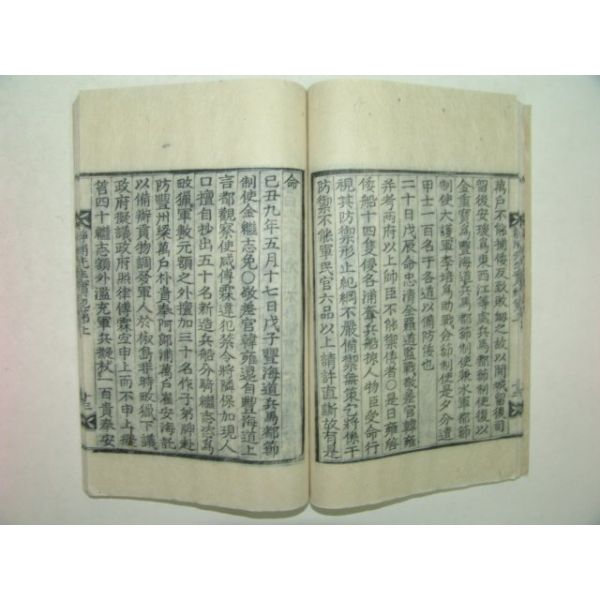 萬戶不能捕倭反致敗衂之故以開城留後司
留後安瑗爲東西江等處兵馬都節制使
金重寶爲豐海道兵馬都節制使兼水軍都節
制使大護軍李培爲助戰分節制使是夕分遣
甲士一百名于各道以備防後也
二十日戊辰命忠淸全羅道監戰敬差官韓雍
并考兩府以上帥臣不能禦倭者○是日雍啓
倭船十四隻侵各浦奪兵船掠人物臣受命行
視其防禦形止紀綱不嚴備禦無策乞將倭干
防禦不能軍民官六品以上請許直斷故有是
命
己丑九年五月十七日戊子豐海道兵馬都節
制使金繼志免○敬差官韓雍還自豐海道上
言都觀察使咸傅霖違犯禁令將隣保加現人
口擅自抄出五十名新造兵船分騎繼志次爲
畋獵軍數元額之外擅加三十名作子弟牌赴
防豐州綏萬戶朴貴奉阿郞浦萬戶崔安海託
以備辦貢物調發軍人於椒島非時畋獵下議
政府擬議政府照律傅霖宜申上而不申上
笞四十繼志額外濫充軍兵擬杖一百貴奉安